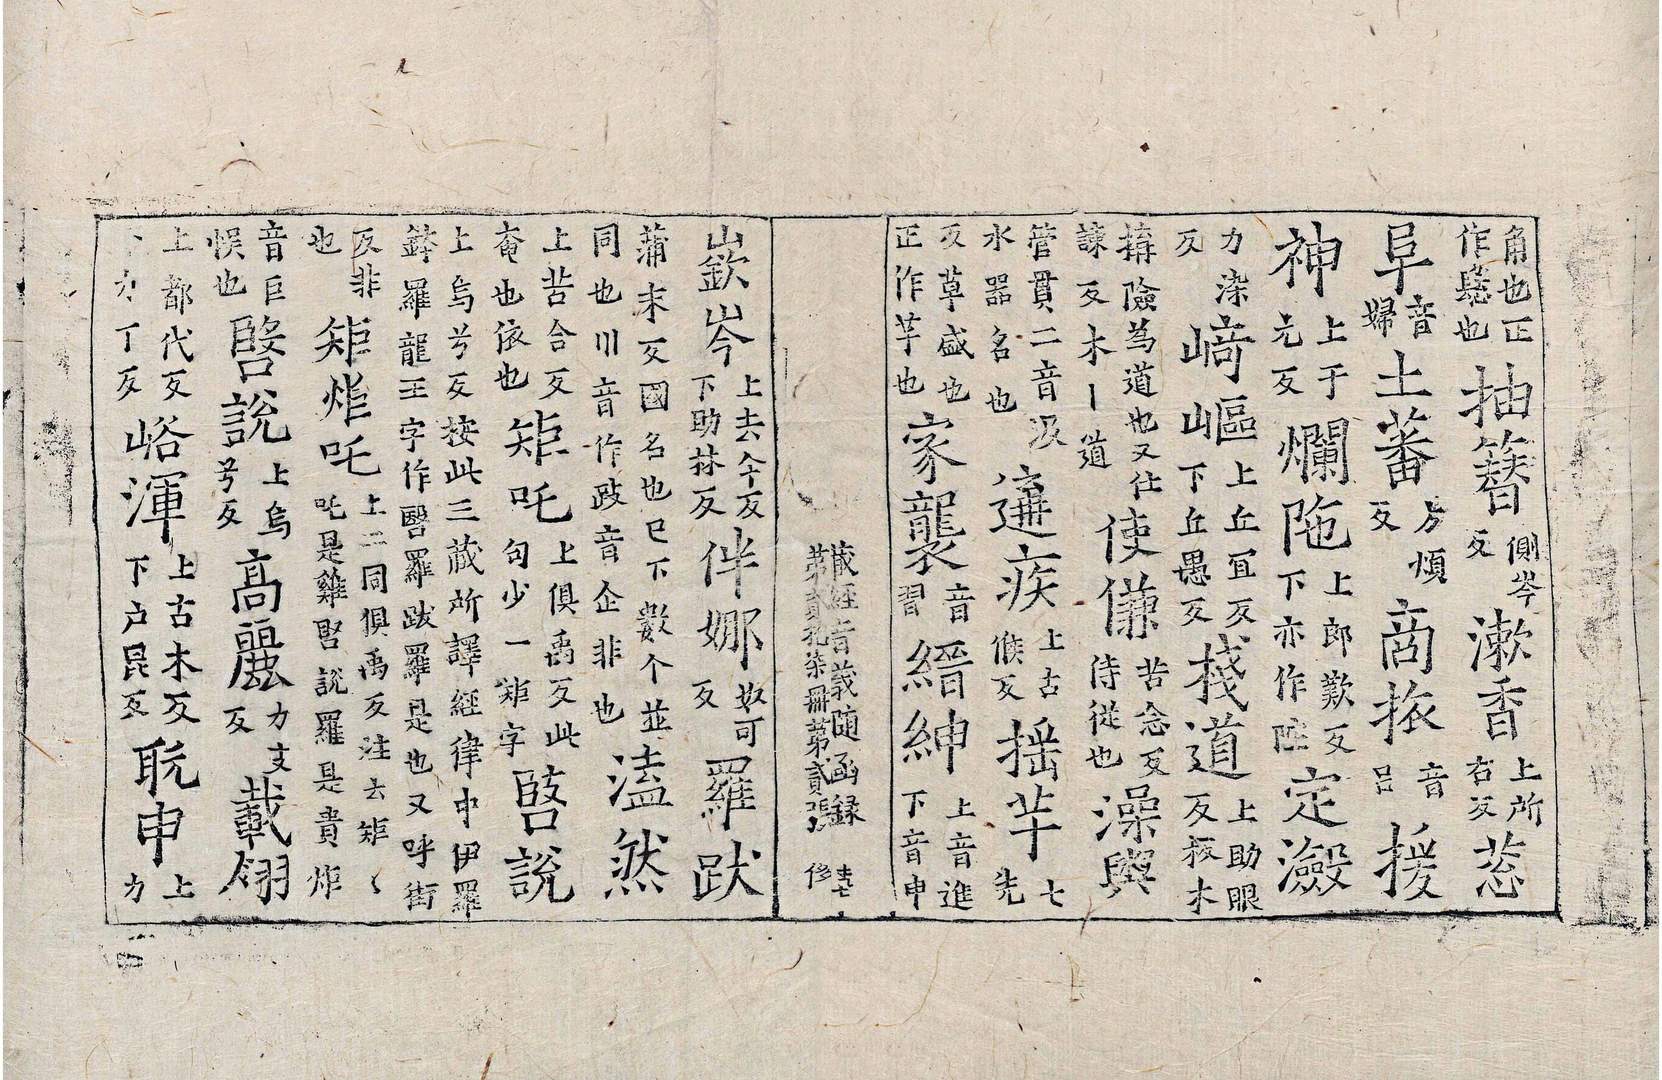 角也正作髭也抽簪側岑反漱香上所右反蕊
阜音婦土蕃方煩反商旅音呂援
神上于元反爛陁上郎歎反下亦作陀定瀲
力染反﨑嶇上丘宜反下丘愚反棧道上助眼反桉木
搆險為道也又仕諫反木丨道使傔苦念反侍從也澡與
管貫二音汲水器名也遘疾上古候反搖芊七先
反草盛也正作芊也家襲音習縉紳上音進下音申
藏經音義隨函錄
第貳拾柒冊第貳張 修
嶔岑上去今反下助林反伴娜奴可反羅跋
蒲末反國名也巳下數个並同也川音作跂音企非也溘然
上苦合反奄也依也矩吒上俱禹反此句少一矩字䃜說
上烏兮反按此三藏所譯經律中伊羅鉢羅龍王字作䃜羅跋羅是也又呼街
反非也矩炬吒上二同俱禹反注云矩〻吒是雞䃜說羅是貴炬
音巨悮也䃜說上烏兮反高麗力支反載翎
上都代反下力丁反峪渾上古木反下戶昆反申上力